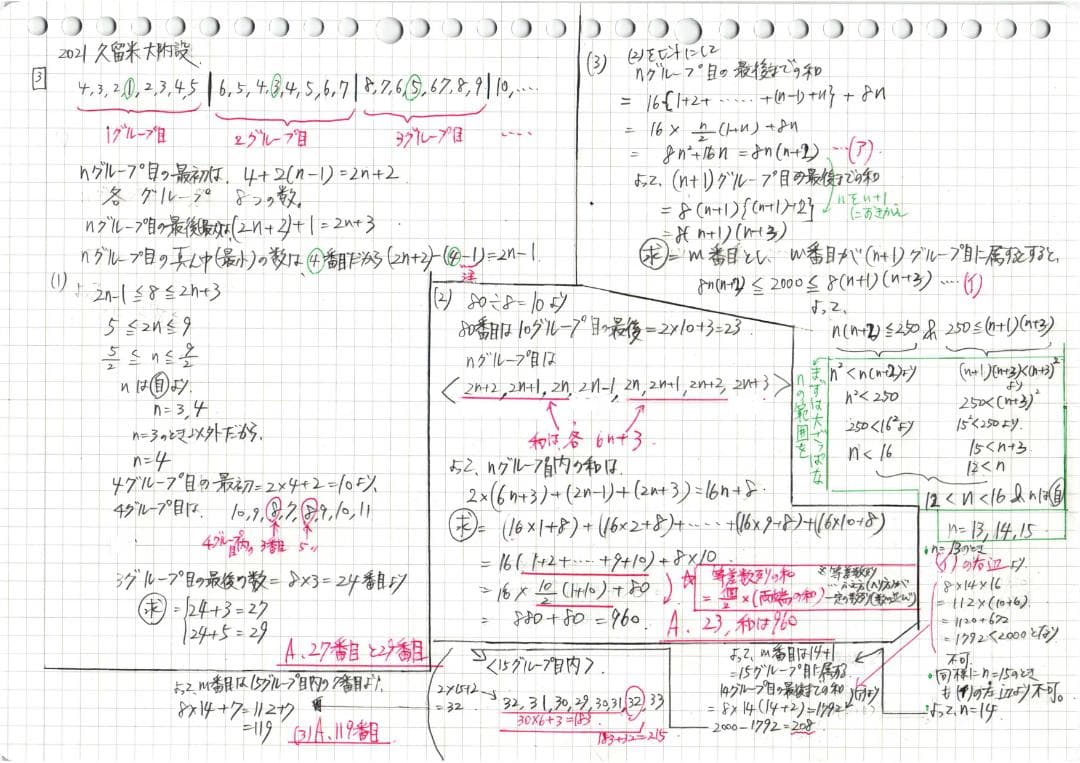 2021 久留米大附設
3
4, 3, 2, 1, 2, 3, 4, 5 | 6, 5, 4, 3, 4, 5, 6, 7 | 8, 7, 6, 5, 6, 7, 8, 9 | 10, ‥‥
1グループ目 2グループ目 3グループ目 ‥‥
nグループ目の最初は、4+2(n-1)=2n+2
各グループ 8つの数。
nグループ目の最後は(2n+2)+1=2n+3
nグループ目の真ん中(最小)の数は、4番目だから(2n+2)-(4-1)=2n-1
注
(1)
2n-1≦8≦2n+3
5≦2n≦9
5/2≦n≦9/2
nは自より、
n=3,4
n=3のとき以外だから、
n=4
4グループ目の最初=2×4+2=10より、
4グループ目は、10,9,8,7,8,9,10,11
4グループ目内の3番目 5〃
3グループ目の最後の数=8×3=24番目より
求={24+3=27
24+5=29
A. 27番目と29番目
(2) 80÷8=10より
80番目は10グループ目の最後=2×10+3=23
nグループ目は
<2n+2, 2n+1, 2n, 2n-1, 2n, 2n+1, 2n+2, 2n+3>
和は各 6n+3
よって、nグループ目内の和は、
2×(6n+3)+(2n-1)+(2n+3)=16n+8
求=(16×1+8)+(16×2+8)+‥‥‥+(16×9+8)+(16×10+8)
=16(1+2+‥‥+9+10)+8×10
=16×10/2(1+10)+80
=880+80=960
☆ 等差数列の和
=個/2×(両端の和)
※等差数列
一定の数列(数の並び)
A. 23, 和は960
(3) (2)をヒントにして
nグループ目の最後までの和
=16{1+2+‥‥‥+(n-1)+n}+8n
=16×n/2(1+n)+8n
=8n²+16n=8n(n+2) ‥‥(ア)
よって、(n+1)グループ目の最後までの和
=8(n+1){(n+1)+2}
nをn+1におきかえ
=8(n+1)(n+3)
求=m番目とし、m番目が(n+1)グループ目に属すとすると、
8n(n+2)≦2000≦8(n+1)(n+3) ‥‥(イ)
よって、
n(n+2)≦250 & 250≦(n+1)(n+3)
まずは大ざっぱなnの範囲を
n²<n(n+2)より
n²<250
250<16²より
n<16
(n+1)(n+3)<(n+3)²
より
250<(n+3)²
15²<250より、
15<n+3
12<n
12<n<16 & nは自
n=13,14,15
・n=13のとき
(イ)の右辺より
8×14×16
=112×(10+6)
=1120+672
=1792<2000となり
不可.
・同様にn=15のとき
も(イ)の左辺より不可。
よって、n=14
よって、m番目は14+1
=15グループ目に属する
14グループの最後までの和
=8×14(14+2)=1792
2000-1792=208
<15グループ目内>
2×15+2
=32
32,31,30,29,30,31,32,33
30×6+3=183
183+32=215
よってm番目は15グループ目内の7番目より、
8×14+7=112+7
=119
(3)A. 119番目